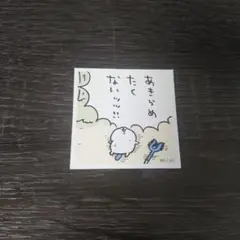 あきらめ
たく
ないッッ!!